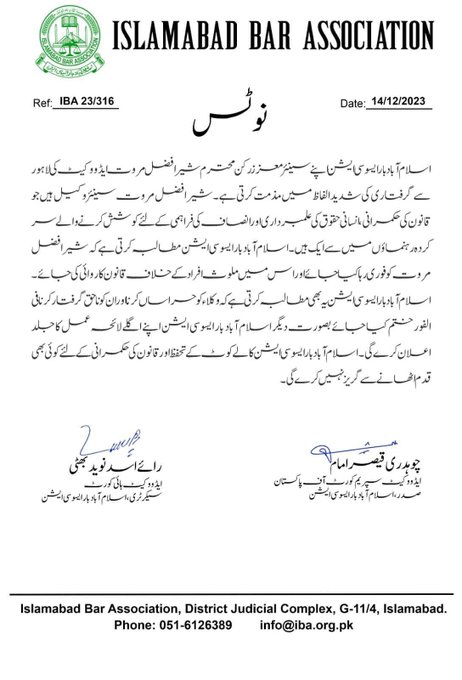 ISLAMABAD BAR ASSOCIATION
ISLAMABAD BAR ASSOCIATION
Ref: IBA 23/316
Date: 14/12/2023
نوٹس
اسلام آباد بار ایسوسی ایشن اپنے سینئر معزز رکن محترم شیر افضل مروت ایڈووکیٹ کی لاہور
سے گرفتاری کی شدید الفاظ میں مذمت کرتی ہے۔ شیر افضل مروت سینئر وکیل ہیں جو
قانون کی حکمرانی، انسانی حقوق کی علمبرداری اور انصاف کی فراہمی کے لئے کوشش کرنے والے سر
کردہ رہنماؤں میں سے ایک ہیں۔ اسلام آباد بار ایسوسی ایشن مطالبہ کرتی ہے کہ شیر افضل
مروت کو فوری رہا کیا جائے اور اس میں ملوث افراد کے خلاف قانون کاروائی کی جائے۔
اسلام آباد بار ایسوسی ایشن یہ بھی مطالبہ کرتی ہے کہ وکلاء کو حراساں کرنا اور ان کو ناحق گرفتار کرنا فی
الفور ختم کیا جائے بصورت دیگر اسلام آباد بار ایسوسی ایشن اپنے اگلے لائحہ عمل کا جلد
اعلان کرے گی۔ اسلام آباد بار ایسوسی ایشن کالے کوٹ کے تحفظ اور قانون کی حکمرانی کے لئے کوئی بھی
قدم اٹھانے سے گریز نہیں کرے گی۔
چوہدری قیصر امام
ایڈووکیٹ سپریم کورٹ آف پاکستان
صدر، اسلام آباد بار ایسوسی ایشن
رائے اسد نوید بھٹی
ایڈووکیٹ ہائی کورٹ
سیکرٹری، اسلام آباد بار ایسوسی ایشن
Islamabad Bar Association, District Judicial Complex, G-11/4, Islamabad.
Phone: 051-6126389 info@iba.org.pk